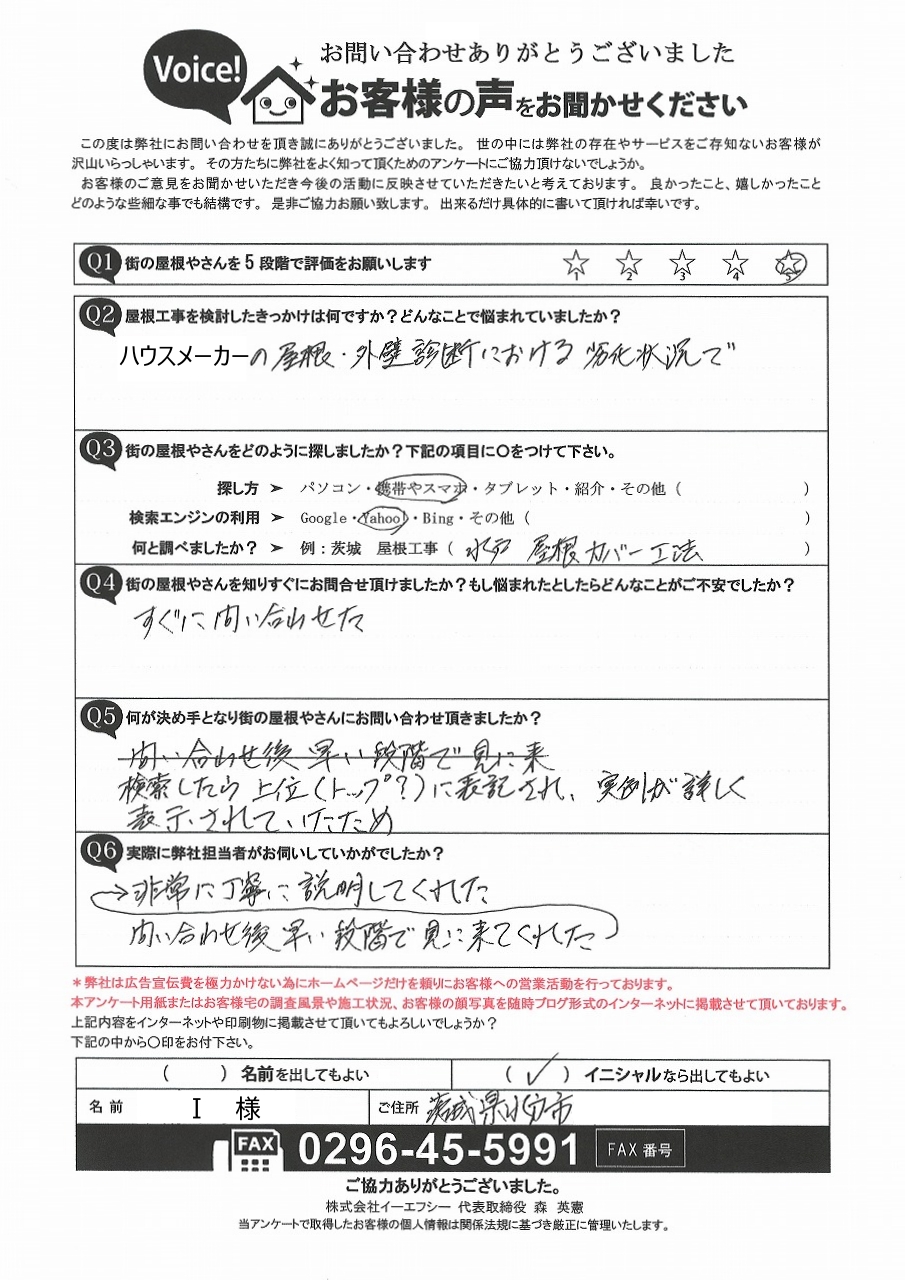 Voice!
お問い合わせありがとうございました
お客様の声をお聞かせください
この度は弊社にお問い合わせを頂き誠にありがとうございました。 世の中には弊社の存在やサービスをご存知ないお客様が
沢山いらっしゃいます。 その方たちに弊社をよく知って頂くためのアンケートにご協力頂けないでしょうか。
お客様のご意見をお聞かせいただき今後の活動に反映させていただきたいと考えております。 良かったこと、嬉しかったこと
どのような些細な事でも結構です。 是非ご協力お願い致します。 出来るだけ具体的に書いて頂ければ幸いです。
Q1 街の屋根やさんを5段階で評価をお願いします ☆1 ☆2 ☆3 ☆4 ☆5
Q2 屋根工事を検討したきっかけは何ですか？どんなことで悩まれていましたか？
ハウスメーカーの屋根・外壁診断における劣化状況で
Q3 街の屋根やさんをどのように探しましたか？下記の項目に〇をつけて下さい。
探し方 ➤ パソコン・携帯やスマホ・タブレット・紹介・その他（ ）
検索エンジンの利用 ➤ Google・Yahoo!・Bing・その他（ ）
何と調べましたか？ ➤ 例：茨城 屋根工事（ 水戸 屋根カバー工法 ）
Q4 街の屋根やさんを知りすぐにお問合せ頂けましたか？もし悩まれたとしたらどんなことがご不安でしたか？
すぐに問い合わせた
Q5 何が決め手となり街の屋根やさんにお問い合わせ頂きましたか？
問い合わせ後早い段階で見に来
検索したら上位（トップ？）に表記され、実例が詳しく
表示されていたため
Q6 実際に弊社担当者がお伺いしていかがでしたか？
非常に丁寧に説明してくれた
問い合わせ後早い段階で見に来てくれた
＊弊社は広告宣伝費を極力かけない為にホームページだけを頼りにお客様への営業活動を行っております。
本アンケート用紙またはお客様宅の調査風景や施工状況、お客様の顔写真を随時ブログ形式のインターネットに掲載させて頂いております。
上記内容をインターネットや印刷物に掲載させて頂いてもよろしいでしょうか？
下記の中から〇印をお付下さい。
（ ）名前を出してもよい （ ✓ ）イニシャルなら出してもよい
名前 I 様 ご住所 茨城県水戸市
FAX 0296-45-5991 FAX番号
ご協力ありがとうございました。
株式会社イーエフシー 代表取締役 森 英憲
当アンケートで取得したお客様の個人情報は関係法規に基づき厳正に管理いたします。